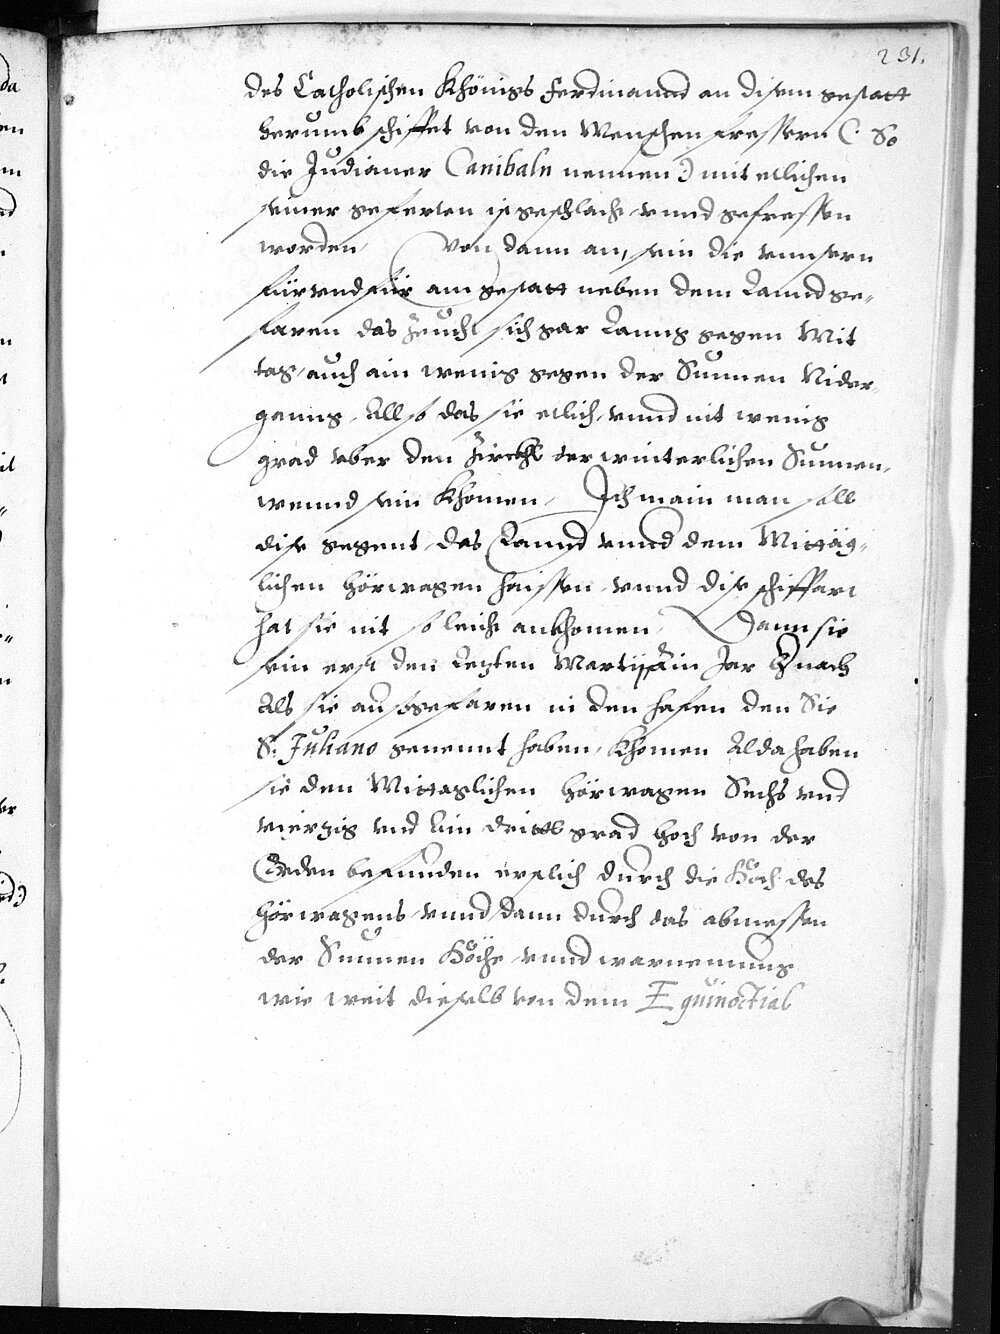 231.
des Catholischen Khönigs Ferdinannd an disem gestatt
herumb schiffet von den Menschen fressern (: So
die Indianer Canibaln nennen :) mit etlichen
seiner geferten ist geschlacht vnnd gefressen
worden Von dann an, sein die vnnsern
für vnd für am gestatt neben dem Lannd ge„
faren das zeucht sich gar Lanng gegen Mit
tag, auch ain wenig gegen der Sunnen Nider„
ganng, Allso das sie etlich vnnd nit wenig
grad vber den Zirckhl der winterlichen Sunnen„
wennd sein khomen, Ich main man soll
dise gegent das Lannd vnnd dem Mittäg„
lichen Hörwagen haissen vnnd dise schiffart
hat sie nit so leicht ankhomen, Dann sie
sein erst den Letzten Martij im Jar hernach
Als sie ausgefaren in den hafen den Sie
S. Juliano genennt haben, khomen Alda haben
sie den Mittaglichen Hörwagen Sechs vnd
vierzig vnd Ain drittl grad hoch von der
Erden befunden erstlich durch die Höch des
Hörwagens vnnd dann durch das abmessen
der Sunnen Höche vnnd warnemung
wie weit dieselb von dem Equinoctial